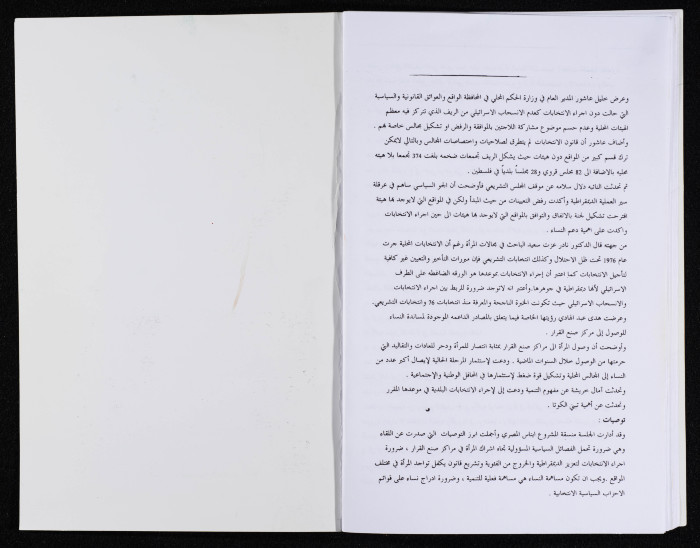 وعرض خليل عاشور المدير العام في وزارة الحكم المحلي في المحافظة الواقع والعوائق القانونية والسياسية
التي حالت دون اجراء الانتخابات كعدم الانسحاب الاسرائيلي من الريف الذي تتركز فيه معظم
الهيئات المحلية وعدم حسم موضوع مشاركة اللاجئين بالموافقة والرفض او تشكيل مجالس خاصة بهم .
وأضاف عاشور أن قانون الانتخابات لم يتطرق لصلاحيات واختصاصات المجالس وبالتالي لايمكن
ترك قسم كبير من المواقع دون هيئات حيث يشكل الريف تجمعات ضخمه بلغت 374 تجمعا بلا هيئة
محليه بالاضافة الى 82 مجلس قروي و28 مجلساً بلدياً في فلسطين .
ثم تحدثت النائبه دلال سلامه عن موقف المجلس التشريعي فأوضحت أن الجو السياسي ساهم في عرقلة
سير العملية الديمقراطية وأكدت رفض التعيينات من حيث المبدأ ولكن في المواقع التي لايوجد بها هيئة
اقترحت تشكيل لجنة بالاتفاق والتوافق بالمواقع التي لايوجد بها هيئات الى حين اجراء الانتخابات
واكدت على اهمية دعم النساء .
من جهته قال الدكتور نادر عزت سعيد الباحث في مجالات المرأة رغم أن الانتخابات المحلية جرت
عام 1976 تحت ظل الاحتلال وكذلك انتخابات التشريعي فإن مبررات التأخير والتعيين غير كافية
لتأجيل الانتخابات كما اعتبر أن إجراء الانتخابات بموعدها هو الورقه الضاغطه على الطرف
الاسرائيلي لأنها ديمقراطية في جوهرها.وأعتبر انه لاتوجد ضرورة للربط بين اجراء الانتخابات
والانسحاب الاسرائيلي حيث تكونت الخبرة الناجحة والمعرفة منذ انتخابات 76 وانتخابات التشريعي.
وعرضت هدى عبد الهادي رؤيتها الخاصة فيما يتعلق بالمصادر الداعمه الموجودة لمساندة النساء
للوصول إلى مركز صنع القرار .
وأوضحت أن وصول المرأة الى مراكز صنع القرار بمثابة انتصار للمرأة ودحر للعادات والتقاليد التي
حرمتها من الوصول خلال السنوات الماضية . ودعت لإستثمار المرحلة الحالية لإيصال أكبر عدد من
النساء إلى المجالس المحلية وتشكيل قوة ضغط لإستثمارها في المحافل الوطنية والإجتماعية .
وتحدثت آمال خريشة عن مفهوم التنمية ودعت إلى لإجراء الانتخابات البلدية في موعدها المقرر
وتحدثت عن أهمية تبني الكوتا .
توصيات :
وقد أدارت الجلسة منسقة المشروع ايناس المصري وأجملت ابرز التوصيات التي صدرت عن اللقاء
وهي ضرورة تحمل الفصائل السياسية المسؤولية تجاه اشراك المرأة في مراكز صنع القرار ، ضرورة
اجراء الانتخابات لتعزيز الديمقراطية والخروج من الفئوية وتشريع قانون يكفل تواجد المرأة في مختلف
المواقع .ويجب ان تكون مساهمة النساء هي مساهمة فعلية للتنمية ، وضرورة ادراج نساء على قوائم
الاحزاب السياسية الانتخابية .